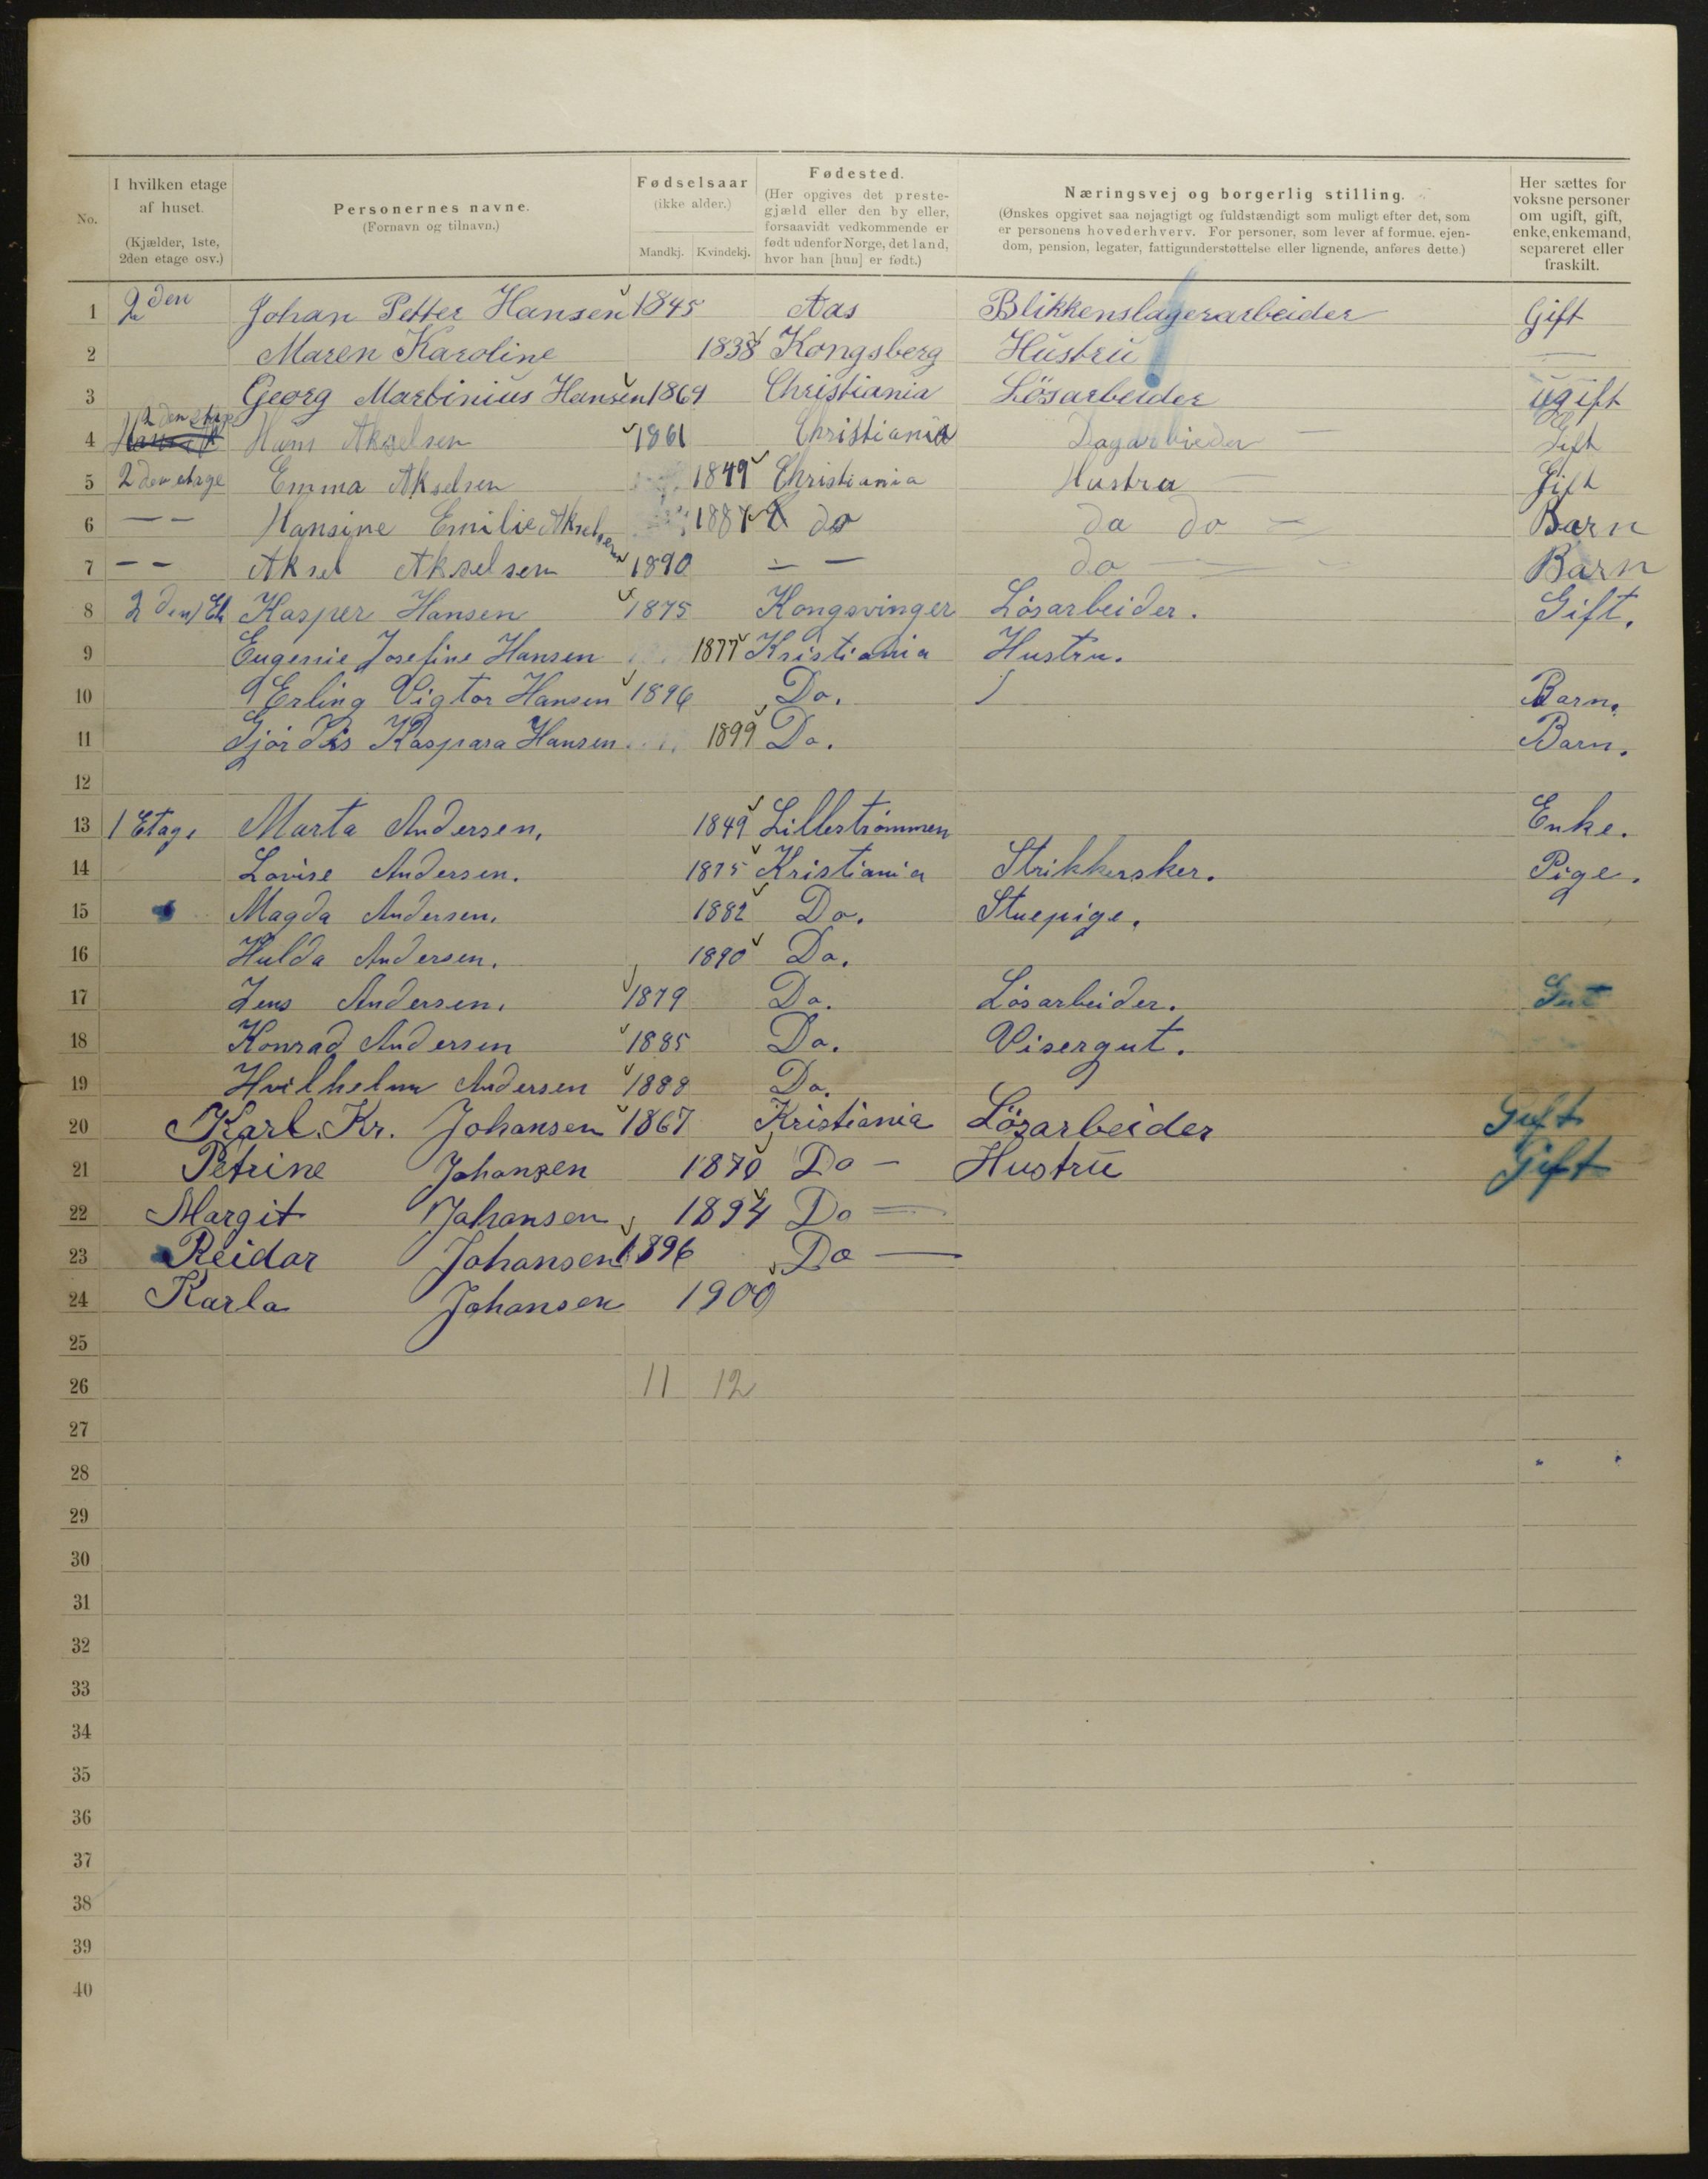 No.
I hvilken etage af huset. (Kjælder, 1ste, 2den etage osv.)
Personernes navne. (Fornavn og tilnavn.)
Fødselsaar (ikke alder.) Mandkj. Kvindekj.
Fødested. (Her opgives det prestegjæld eller den by eller, forsaavidt vedkommende er født udenfor Norge, det land, hvor han [hun] er født.)
Næringsvej og borgerlig stilling. (Ønskes opgivet saa nøjagtigt og fuldstændigt som muligt efter det, som er personens hovederhverv. For personer, som lever af formue, ejendom, pension, legater, fattigunderstøttelse eller lignende, anføres dette.)
Her sættes for voksne personer om ugift, gift, enke, enkemand, separeret eller fraskilt.
1 2den Johan Petter Hansen 1845 Aas Blikkenslagerarbeider Gift
2 Maren Karoline 1838 Kongsberg Hustru —
3 Georg Martinius Hansen 1869 Christiania Lösarbeider ugift
4 2den etage Hans Akselsen 1861 Christiania Dagarbieder — Gift
5 2den etage Emma Akselsen 1849 Christiania Hustru — Gift
6 — — Hansine Emilie Akselsen 1887 do do do — Barn
7 — — Aksel Akselsen 1890 — — do — Barn
8 2den Et Kasper Hansen 1875 Kongsvinger Lösarbeider. Gift.
9 Eugenie Josefine Hansen 1877 Kristiania Hustru.
10 Erling Vigtor Hansen 1896 Do. Barn.
11 Gjördis Kaspara Hansen 1899 Do. Barn.
12
13 1 Etage Marta Andersen. 1849 Lilleströmmen Enke.
14 Lovise Andersen. 1875 Kristiania Strikkersker. Pige.
15 Magda Andersen. 1882 Do. Stuepige.
16 Hulda Andersen. 1890 Do.
17 Jens Andersen. 1879 Do. Lösarbeider. Gut
18 Konrad Andersen 1885 Do. Visergut.
19 Hvilhelm Andersen 1888 Do.
20 Karl. Kr. Johansen 1867 Kristiania Lösarbeider Gift
21 Petrine Johansen 1870 Do — Hustru Gift
22 Margit Johansen 1894 Do —
23 Reidar Johansen 1896 Do —
24 Karla Johansen 1900
25
26 11 12
27
28
29
30
31
32
33
34
35
36
37
38
39
40